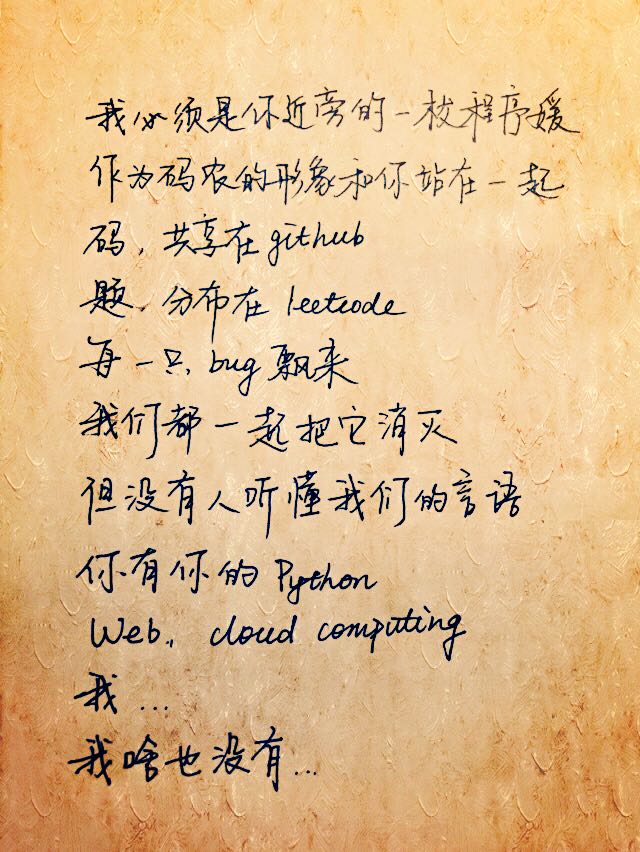 我必须是你近旁的一枚程序媛
作为码农的形象和你站在一起
码，共享在github
题，分布在leetcode
每一只bug飘来
我们都一起把它消灭
但没有人听懂我们的言语
你有你的Python
Web, cloud computing
我...
我啥也没有...